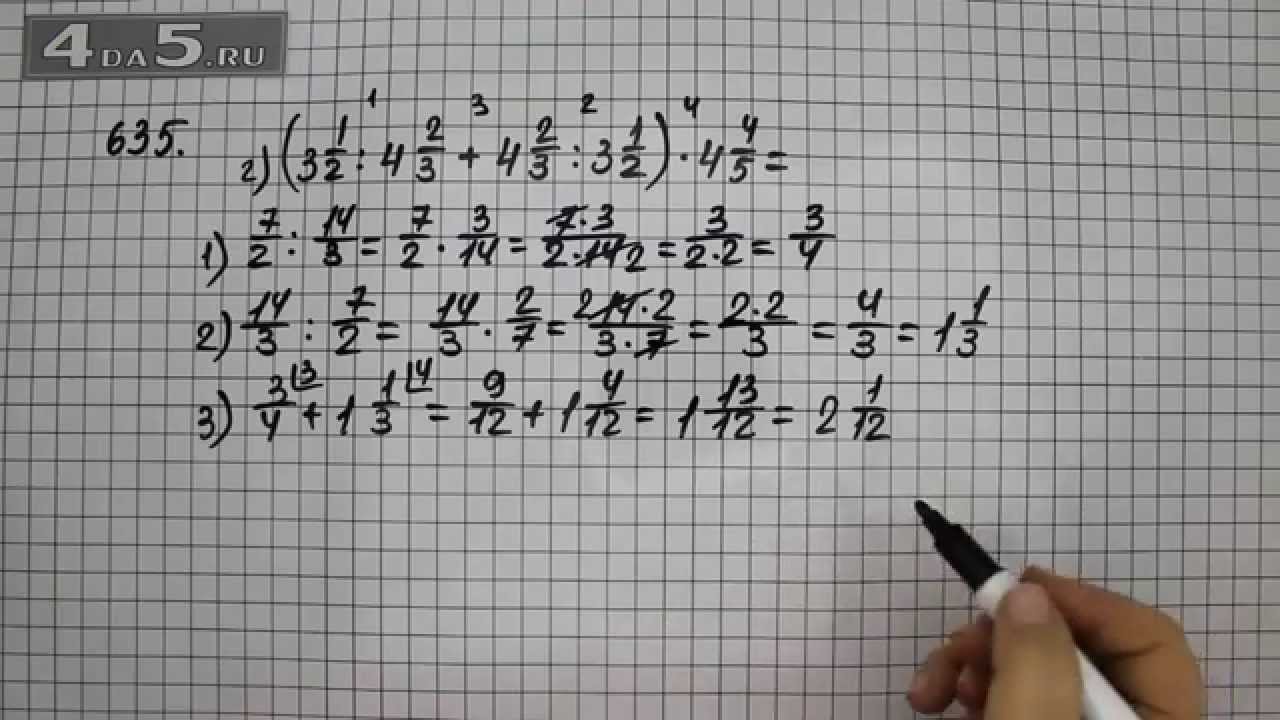 4DA5.RU
635.
1 3 2 4
г) (3 1/2 : 4 2/3 + 4 2/3 : 3 1/2) · 4 4/5 =
1) 7/2 : 14/3 = 7/2 · 3/14 = 7·3/2·14 2 = 3/2·2 = 3/4
2) 14/3 : 7/2 = 14/3 · 2/7 = 2 14·2/3·7 = 2·2/3 = 4/3 = 1 1/3
3) 3/4 ⌊3 + 1 1/3 ⌊4 = 9/12 + 1 4/12 = 1 13/12 = 2 1/12